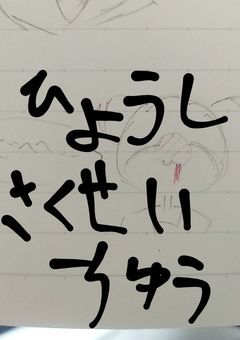 ひょうし
さくせい
ちゅう